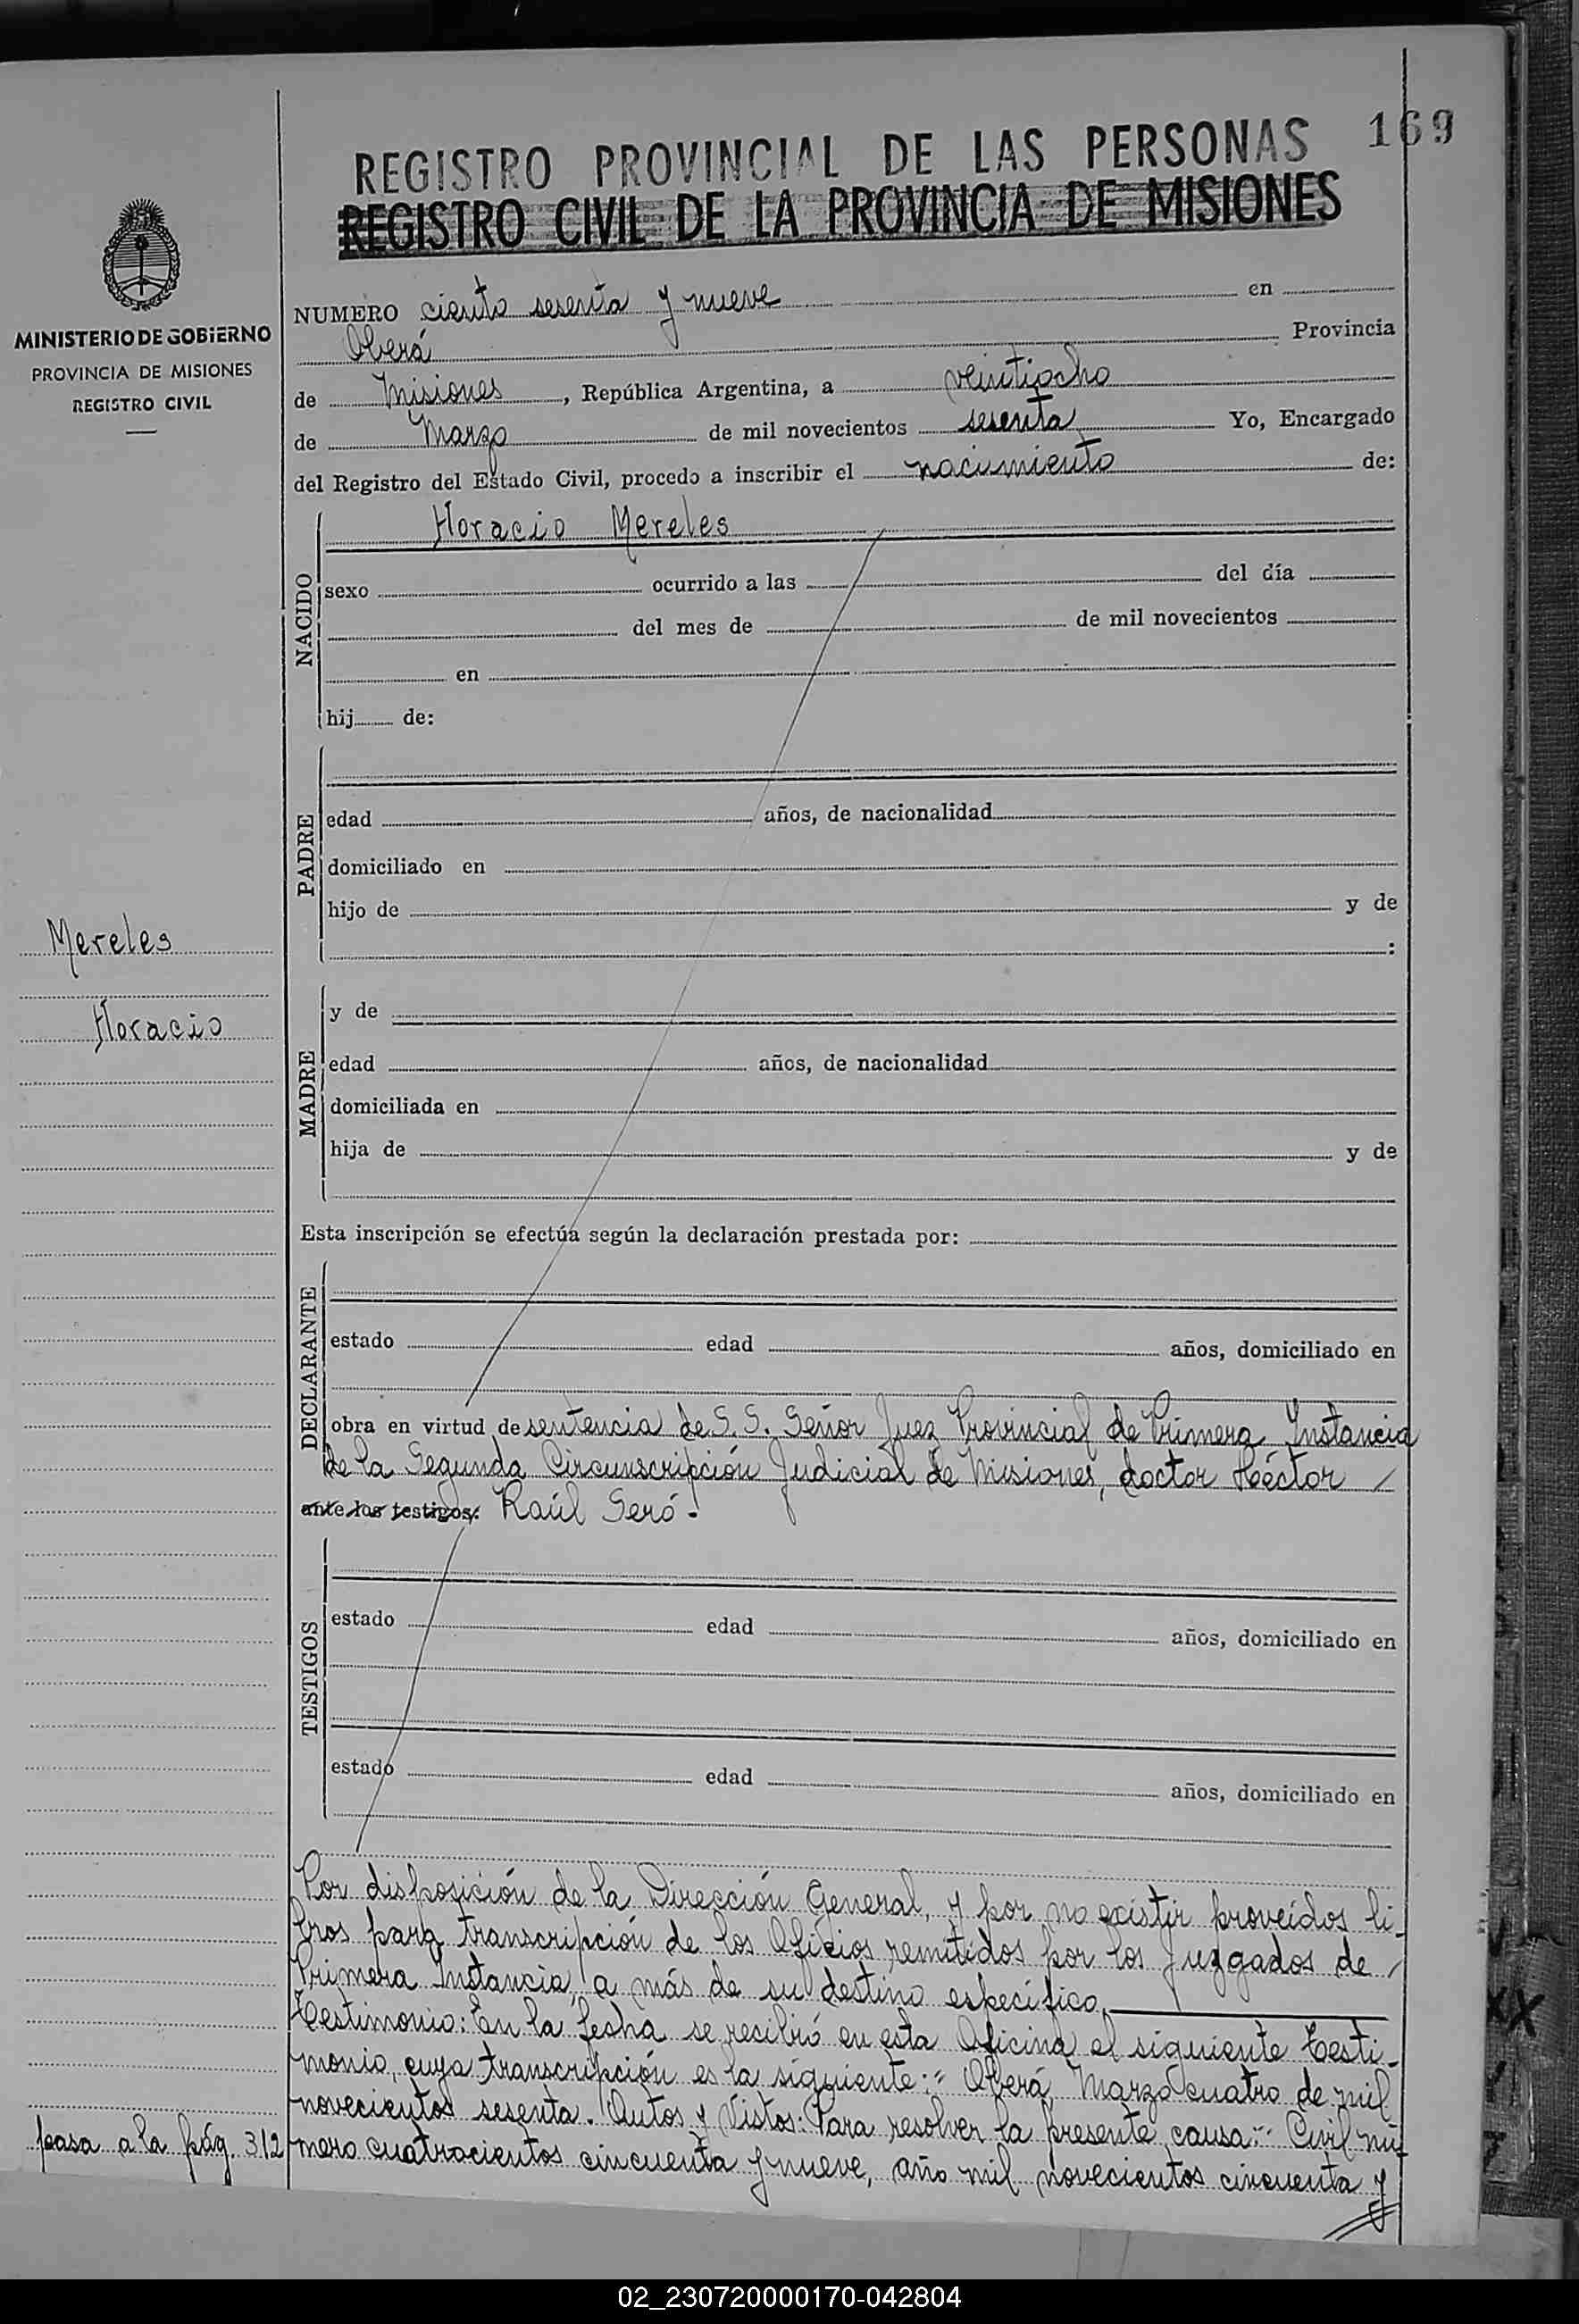 REGISTRO PROVINCIAL DE LAS PERSONAS 169
REGISTRO CIVIL DE LA PROVINCIA DE MISIONES
MINISTERIO DE GOBIERNO
PROVINCIA DE MISIONES
REGISTRO CIVIL
NUMERO ciento sesenta y nueve en
Oberá Provincia
de Misiones, República Argentina, a veintiocho
de Marzo de mil novecientos sesenta Yo, Encargado
del Registro del Estado Civil, procedo a inscribir el nacimiento de:
NACIDO
Horacio Mereles
sexo ocurrido a las del día
del mes de de mil novecientos
en
hij de:
PADRE
edad años, de nacionalidad
domiciliado en
hijo de y de
:
Mereles
Horacio
MADRE
y de
edad años, de nacionalidad
domiciliada en
hija de y de
Esta inscripción se efectúa según la declaración prestada por:
DECLARANTE
estado edad años, domiciliado en
obra en virtud de sentencia de S. S. Señor Juez Provincial de Primera Instancia
de la Segunda Circunscripción Judicial de Misiones, doctor Héctor /
ante los testigos: Raúl Seró.-
TESTIGOS
estado edad años, domiciliado en
estado edad años, domiciliado en
Por disposición de la Dirección General, y por no existir proveídos li-
bros para transcripción de los Oficios remitidos por los Juzgados de /
Primera Instancia, a más de su destino específico.
Testimonio: En la fecha se recibió en esta Oficina el siguiente Testi-
monio, cuya transcripción es la siguiente:=" Oberá, Marzo cuatro de mil
novecientos sesenta. Autos y Vistos: Para resolver la presente causa:- Civil nú-
mero cuatrocientos cincuenta y nueve, año mil novecientos cincuenta y
pasa a la pág. 312
02_230720000170-042804